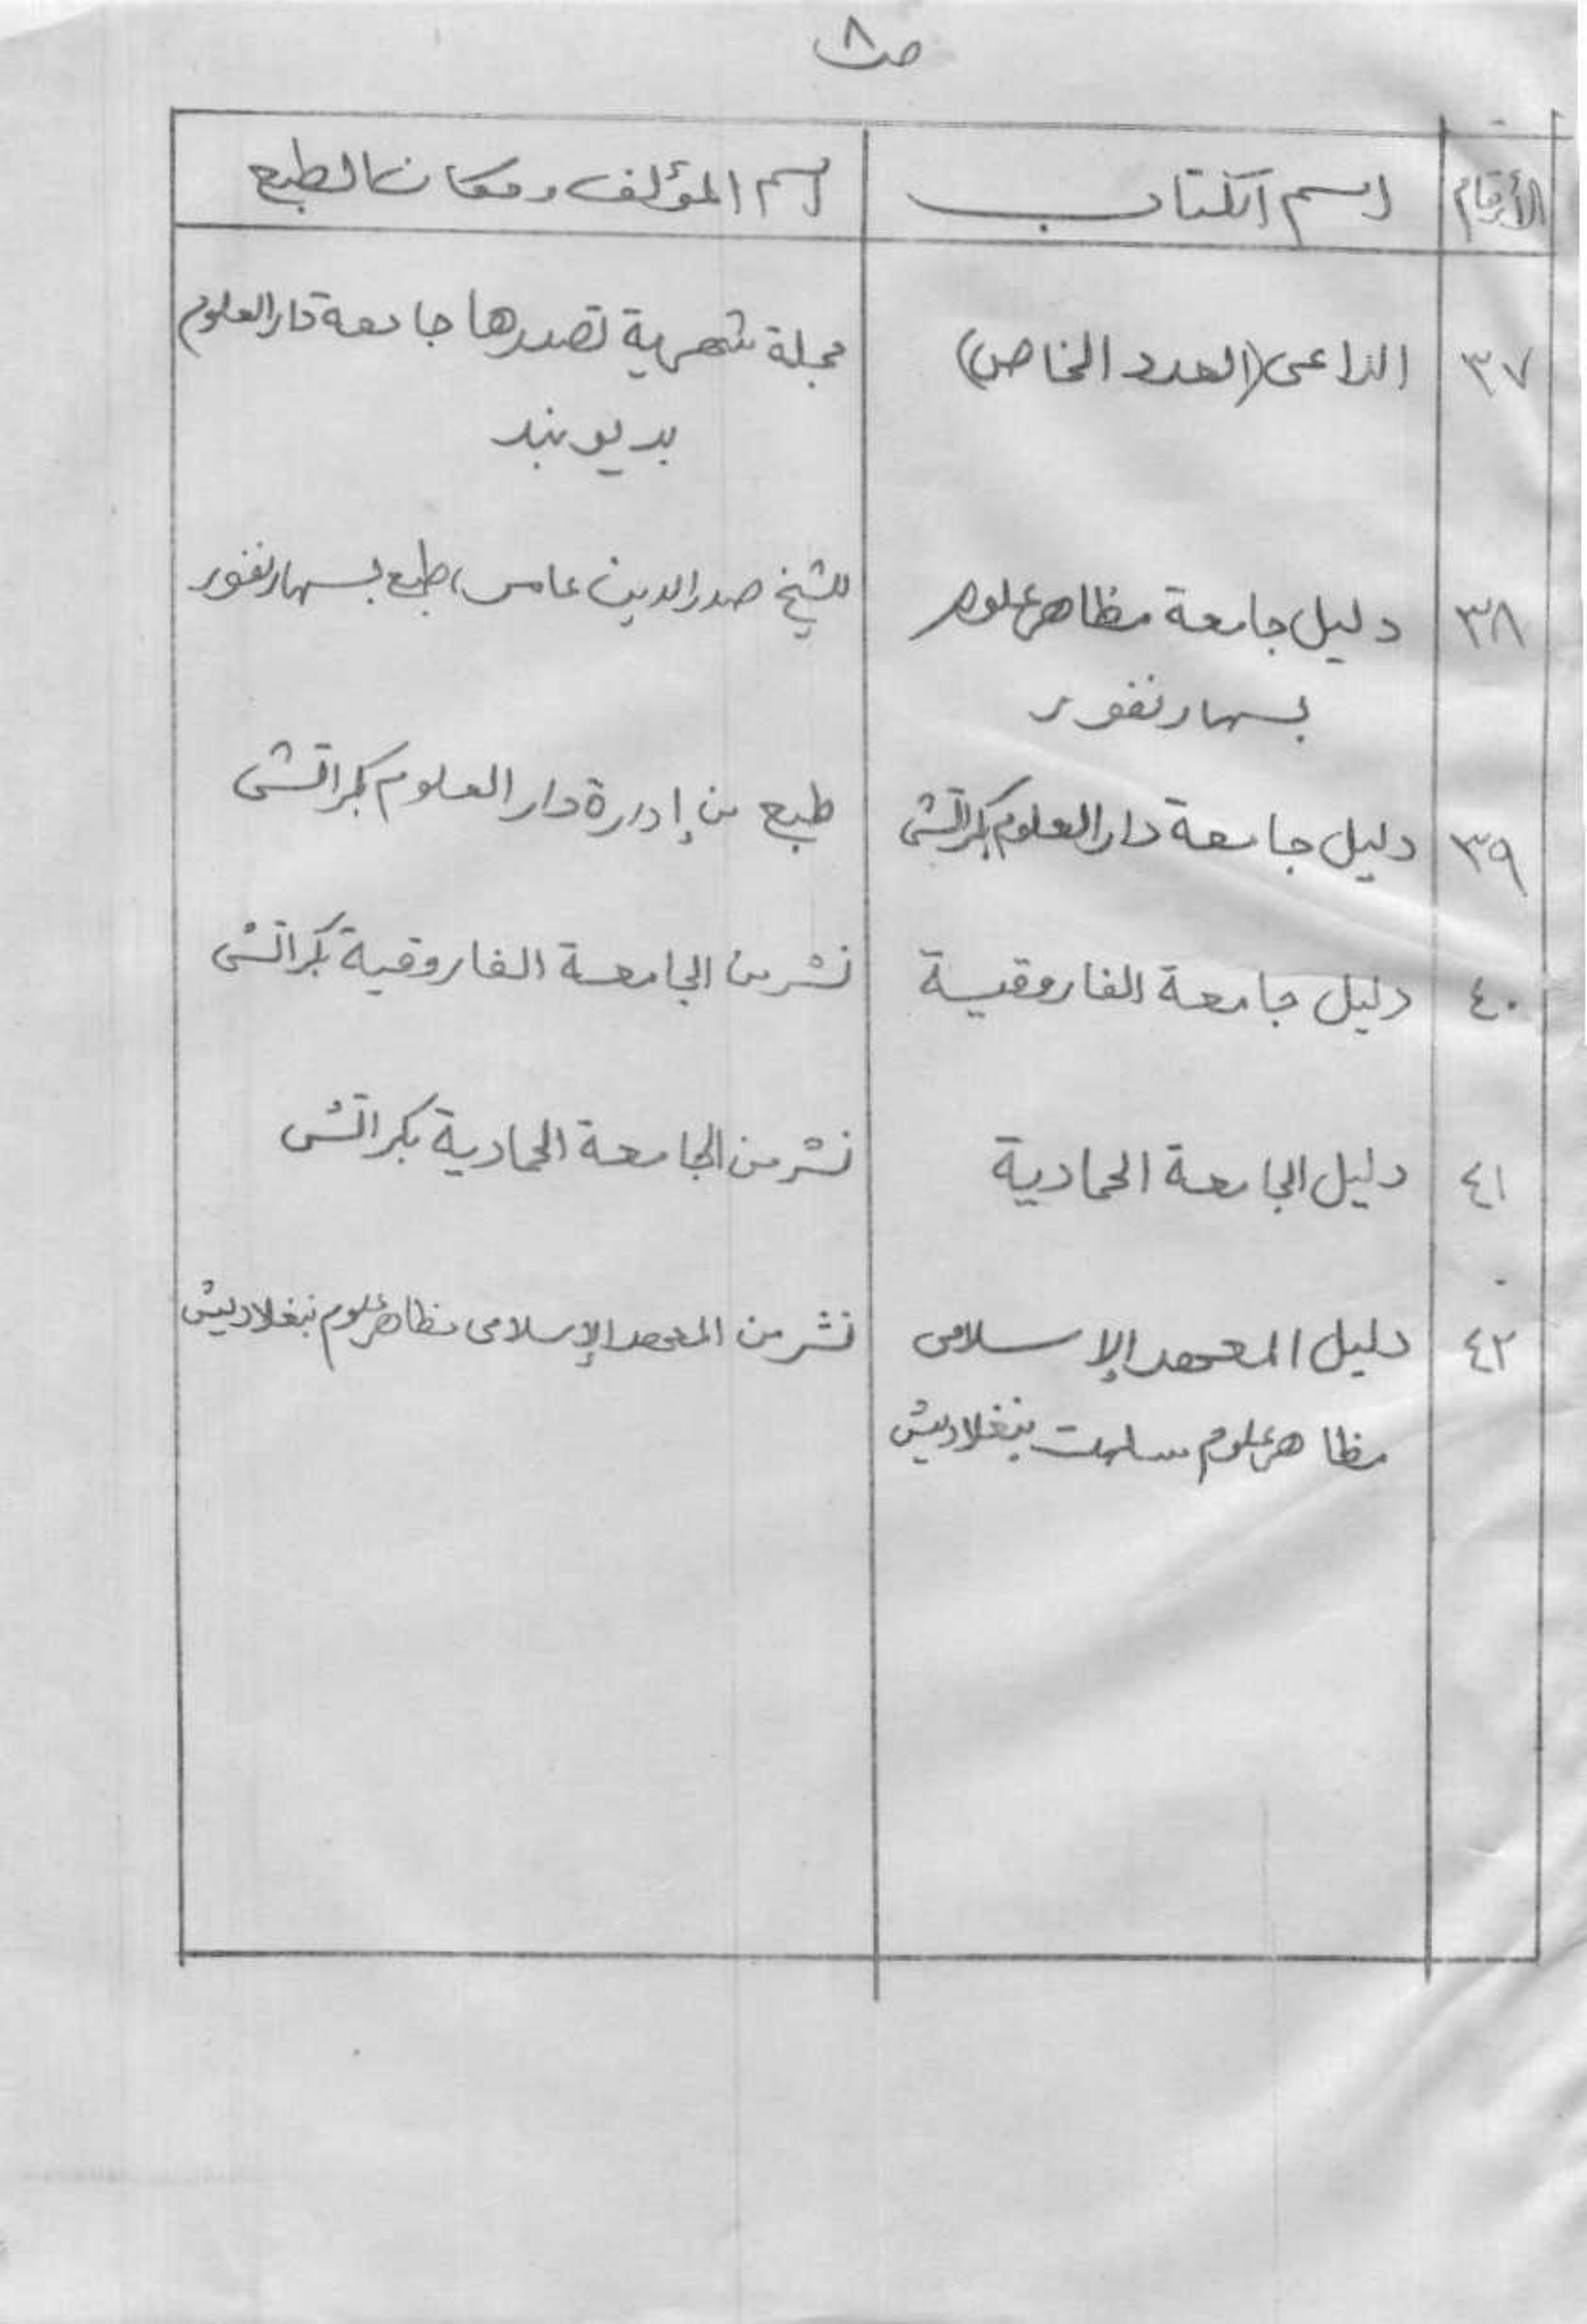 ص ٨
الأرقام اسم الكتاب اسم المؤلف ومكان الطبع
٣٧ الداعى (العدد الخاص) مجلة شهرية تصدرها جامعة دار العلوم
بديوبند
٣٨ دليل جامعة مظاهر علوم للشيخ صدر الدين عامر، طبع بسهارنفور
بسهارنفور
٣٩ دليل جامعة دار العلوم بكراتشى طبع من إدارة دار العلوم بكراتشى
٤٠ دليل جامعة الفاروقية نشر من الجامعة الفاروقية بكراتشى
٤١ دليل الجامعة الحمادية نشر من الجامعة الحمادية بكراتشى
٤٢ دليل المعهد الإسلامى نشر من المعهد الإسلامى مظاهر علوم بنغلاديش
مظاهر علوم سلهت بنغلاديش